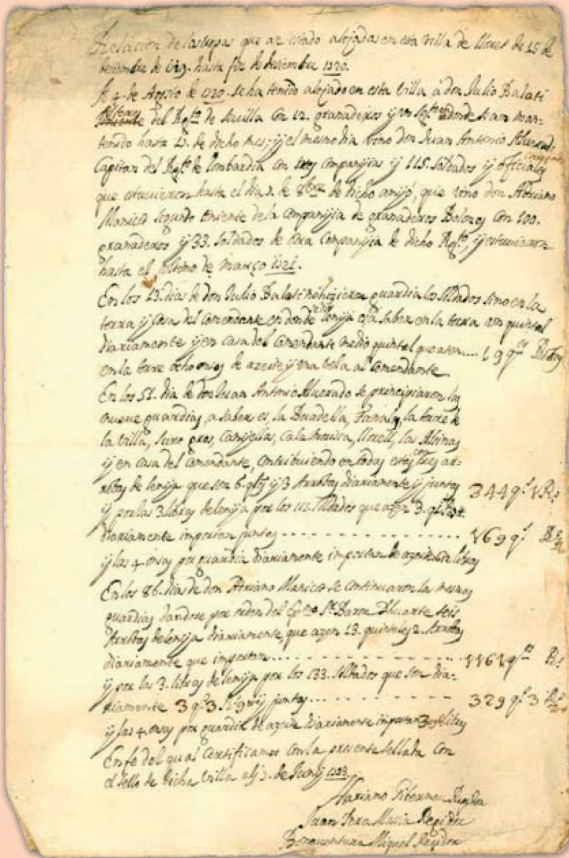 Relacion de las tropas que an estado alojadas en esta villa de Lloret de 15 de
Setiembre de 1719. hasta fin de desembre 1720.
A 4 de Agosto de 1720. se ha tenido alojado en esta Villa á don Julio Balati
del Regto. de Sevilla con 12. granaderos y un donde se an man-
tenido hasta 23. de dicho mes; y el mesmo dia vino don Juan Antonio Alvarado
Capitan del Regto. de Lombardia con tres Companyias y 115. Soldados y oficiales
que estuvieron hasta el dia 3. de 8bre de dicho anyo, que vino don Adriano
Manico segundo teniente de la Companyia de granaderos Bolones con 100.
granaderos y 33. Soldados de otra Companyia de dicho Regto. y estuvieron
hasta el ultimo de março 1721.
En los 23. dias de don Julio Balati no hizieron guardia los Soldados sino en la
torra y Casa del Comendante en donde lenya es a saber en la torra un quintal
diariamente y en casa del Comendante medio quintal que azen.... 19 qs
en la torre ocho onsas de azeite y una vela al Comendante
En los 51. dia de don Juan Antonio Alvarado se principiaron las
nueve guardias, a saber es, la Boadella, Fanals, la torre de
la Villa, Suro gros, Canyellas, Cala Morisca, Lloret, las Alsinas
y en casa del Comendante, contribuiendo en todas estas tres ar-
robas de lenya que son 6. qs y 3 Arrobas diariamente y juntos 344 qs 1 R.
y por las 3 libras de lenya por los 112. Soldados que azen 3. qs
diariamente importan juntos - - - - - - - - - - - 169 qs
y las 4. onsas por guardia diariamente importan de azeite libras
En los 86. dias de don Adriano Manico se continuaron las mesmas
guardias dandose por orden del Sr. Baron Huarte seis
Arrobas de lenya diariamente, que azen 13. quintales 2. Arrobas
diariamente que importan.... - - - - - - - - 1161 qs R.
y por las 3. libras de lenya por los 133. Soldados que son dia-
riamente 3 qs 3 juntos.... - - - - - - - - 329 qs 3
y las 4. onsas por guardia de azeite diariamente importan libras
En fe del qual Certificamos con la presente sellada con
el sello de dicha Villa als 3. de Juny 1723.
Mariano Regidor
Juan Pera Maria Regidor
Bonaventura Miquel Regidor